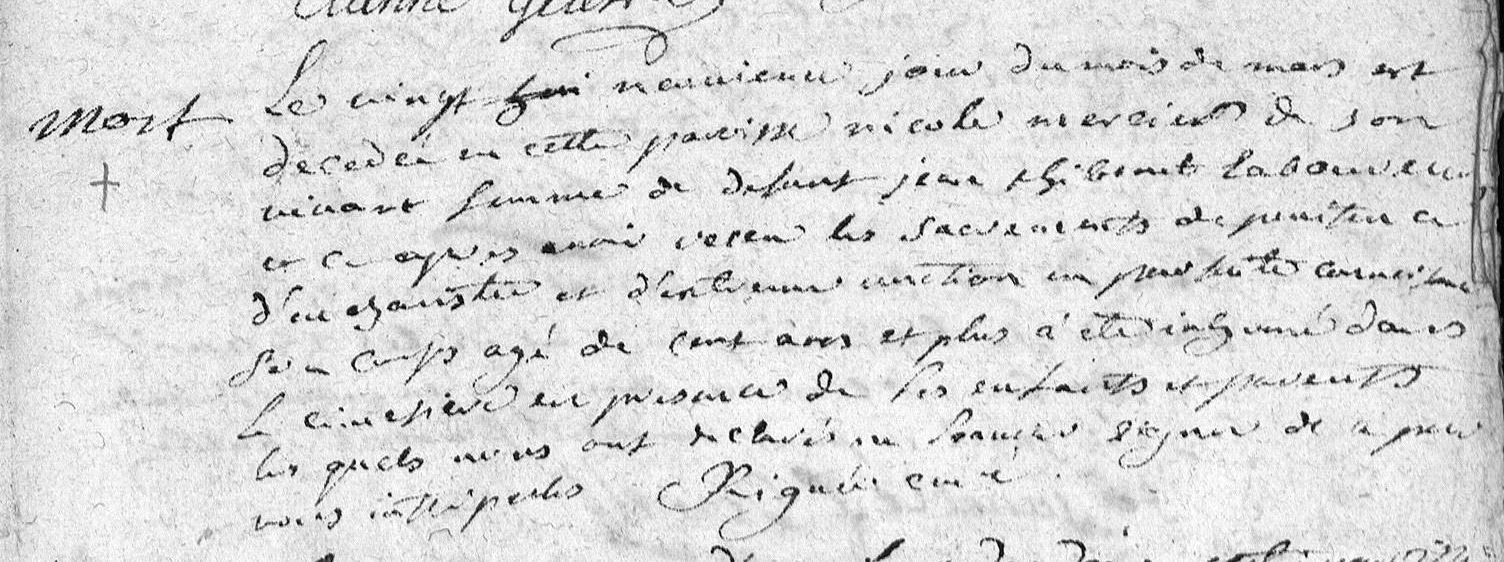 Etienne
Le vingt neuvieme jour du mois de mars est
Mort
decedée en cette paroisse nicole mercier de son
vivant femme de defunt jean thibout laboureur
et ce apres avoir receu les sacrements de penitence
d'eucharistie et d'extreme onction en
son corps agé de cent ans et plus a été inhumé dans
le cimetiere en presence de ses enfants et parents
les quels nous ont declarés ne scavoir signer de ce par
nous interpellés Rigault curé